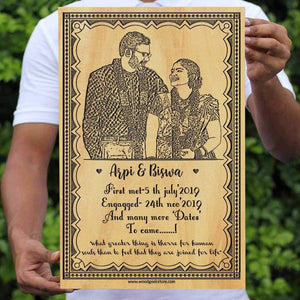 Arpi & Biswa
First met-5 th july'2019
Engagged- 24th nov'2019
And many more 'Dates'
To came.......!
what greater thing is therre for human
souls than to feel that they are joined for life"
www.woodgeekstore.com